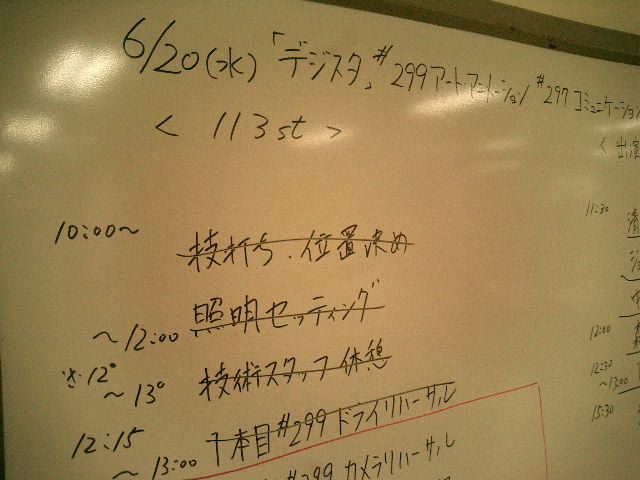 6/20(水)「デジスタ」#299 アートアニメーション #297 コミュニケーション
< 113st >
< 出演
10:00~ 技打ち・位置決め
照明セッティング
~12:00
12°~13° 技術スタッフ休憩
12:15 1本目 #299 ドライリハーサル
~13:00
#299 カメラリハーサル
11:30
12:00
12:30
~13:00
15:30